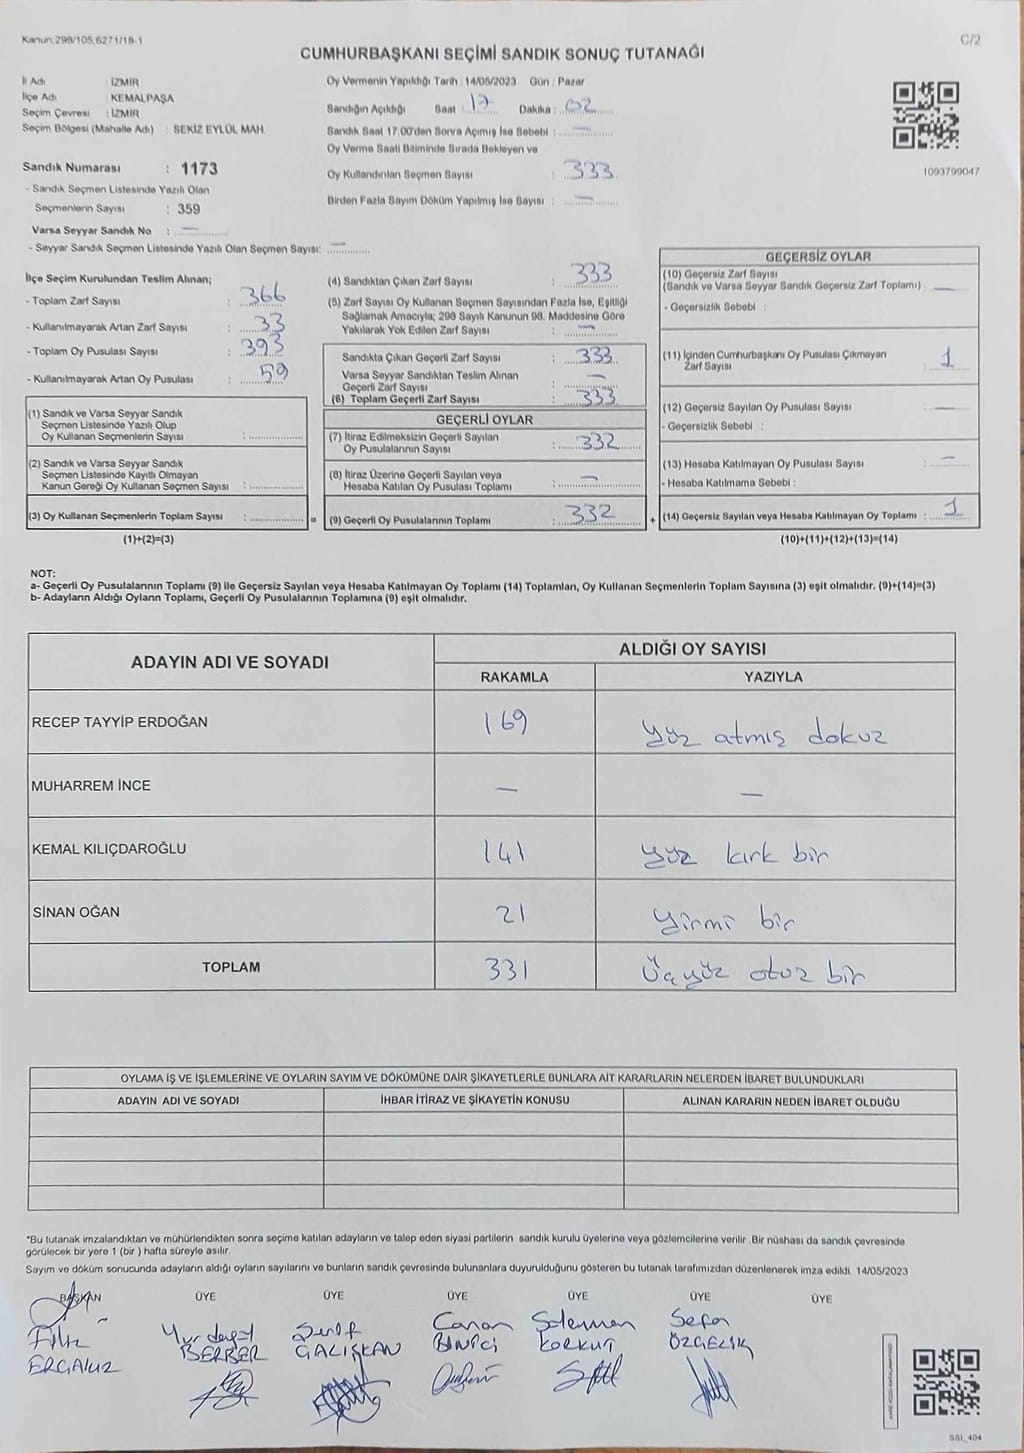 Kanun,298/105,6271/18-1
C/2
CUMHURBAŞKANI SEÇİMİ SANDIK SONUÇ TUTANAĞI
İl Adı : İZMİR
İlçe Adı : KEMALPAŞA
Seçim Çevresi : İZMİR
Seçim Bölgesi (Mahalle Adı) : SEKİZ EYLÜL MAH.
Sandık Numarası : 1173
- Sandık Seçmen Listesinde Yazılı Olan
Seçmenlerin Sayısı : 359
Varsa Seyyar Sandık No : —
- Seyyar Sandık Seçmen Listesinde Yazılı Olan Seçmen Sayısı: —
Oy Vermenin Yapıldığı Tarih : 14/05/2023 Gün : Pazar
Sandığın Açıldığı Saat : 17 Dakika : 02
Sandık Saat 17:00'den Sonra Açılmış İse Sebebi : —
Oy Verme Saati Bitiminde Sırada Bekleyen ve
Oy Kullandırılan Seçmen Sayısı : 333
Birden Fazla Sayım Döküm Yapılmış İse Sayısı : —
1093799047
İlçe Seçim Kurulundan Teslim Alınan;
- Toplam Zarf Sayısı : 366
- Kullanılmayarak Artan Zarf Sayısı : 33
- Toplam Oy Pusulası Sayısı : 393
- Kullanılmayarak Artan Oy Pusulası : 59
(1) Sandık ve Varsa Seyyar Sandık
Seçmen Listesinde Yazılı Olup
Oy Kullanan Seçmenlerin Sayısı :
(2) Sandık ve Varsa Seyyar Sandık
Seçmen Listesinde Kayıtlı Olmayan
Kanun Gereği Oy Kullanan Seçmen Sayısı :
(3) Oy Kullanan Seçmenlerin Toplam Sayısı : =
(1)+(2)=(3)
(4) Sandıktan Çıkan Zarf Sayısı : 333
(5) Zarf Sayısı Oy Kullanan Seçmen Sayısından Fazla İse, Eşitliği
Sağlamak Amacıyla; 298 Sayılı Kanunun 98. Maddesine Göre
Yakılarak Yok Edilen Zarf Sayısı : —
Sandıkta Çıkan Geçerli Zarf Sayısı : 333
Varsa Seyyar Sandıktan Teslim Alınan
Geçerli Zarf Sayısı : —
(6) Toplam Geçerli Zarf Sayısı : 333
GEÇERLİ OYLAR
(7) İtiraz Edilmeksizin Geçerli Sayılan
Oy Pusulalarının Sayısı : 332
(8) İtiraz Üzerine Geçerli Sayılan veya
Hesaba Katılan Oy Pusulası Toplamı : —
(9) Geçerli Oy Pusulalarının Toplamı : 332 +
GEÇERSİZ OYLAR
(10) Geçersiz Zarf Sayısı
(Sandık ve Varsa Seyyar Sandık Geçersiz Zarf Toplamı) : —
- Geçersizlik Sebebi :
(11) İçinden Cumhurbaşkanı Oy Pusulası Çıkmayan
Zarf Sayısı : 1
(12) Geçersiz Sayılan Oy Pusulası Sayısı : —
- Geçersizlik Sebebi :
(13) Hesaba Katılmayan Oy Pusulası Sayısı : —
- Hesaba Katılmama Sebebi :
(14) Geçersiz Sayılan veya Hesaba Katılmayan Oy Toplamı : 1
(10)+(11)+(12)+(13)=(14)
NOT:
a- Geçerli Oy Pusulalarının Toplamı (9) ile Geçersiz Sayılan veya Hesaba Katılmayan Oy Toplamı (14) Toplamları, Oy Kullanan Seçmenlerin Toplam Sayısına (3) eşit olmalıdır. (9)+(14)=(3)
b- Adayların Aldığı Oyların Toplamı, Geçerli Oy Pusulalarının Toplamına (9) eşit olmalıdır.
ADAYIN ADI VE SOYADI ALDIĞI OY SAYISI
RAKAMLA YAZIYLA
RECEP TAYYİP ERDOĞAN 169 Yüz atmış dokuz
MUHARREM İNCE — —
KEMAL KILIÇDAROĞLU 141 yüz kırk bir
SİNAN OĞAN 21 Yirmi bir
TOPLAM 331 Üçyüz otuz bir
OYLAMA İŞ VE İŞLEMLERİNE VE OYLARIN SAYIM VE DÖKÜMÜNE DAİR ŞİKAYETLERLE BUNLARA AİT KARARLARIN NELERDEN İBARET BULUNDUKLARI
ADAYIN ADI VE SOYADI İHBAR İTİRAZ VE ŞİKAYETİN KONUSU ALINAN KARARIN NEDEN İBARET OLDUĞU
*Bu tutanak imzalandıktan ve mühürlendikten sonra seçime katılan adayların ve talep eden siyasi partilerin sandık kurulu üyelerine veya gözlemcilerine verilir .Bir nüshası da sandık çevresinde
görülecek bir yere 1 (bir ) hafta süreyle asılır.
Sayım ve döküm sonucunda adayların aldığı oyların sayılarını ve bunların sandık çevresinde bulunanlara duyurulduğunu gösteren bu tutanak tarafımızdan düzenlenerek imza edildi. 14/05/2023
BAŞKAN ÜYE ÜYE ÜYE ÜYE ÜYE ÜYE
Filiz Yurdagül Şerif Canan Süleyman Sefa
BERBER ÇALIŞKAN BİNİCİ KORKUT ÖZÇELİK
SSI_404